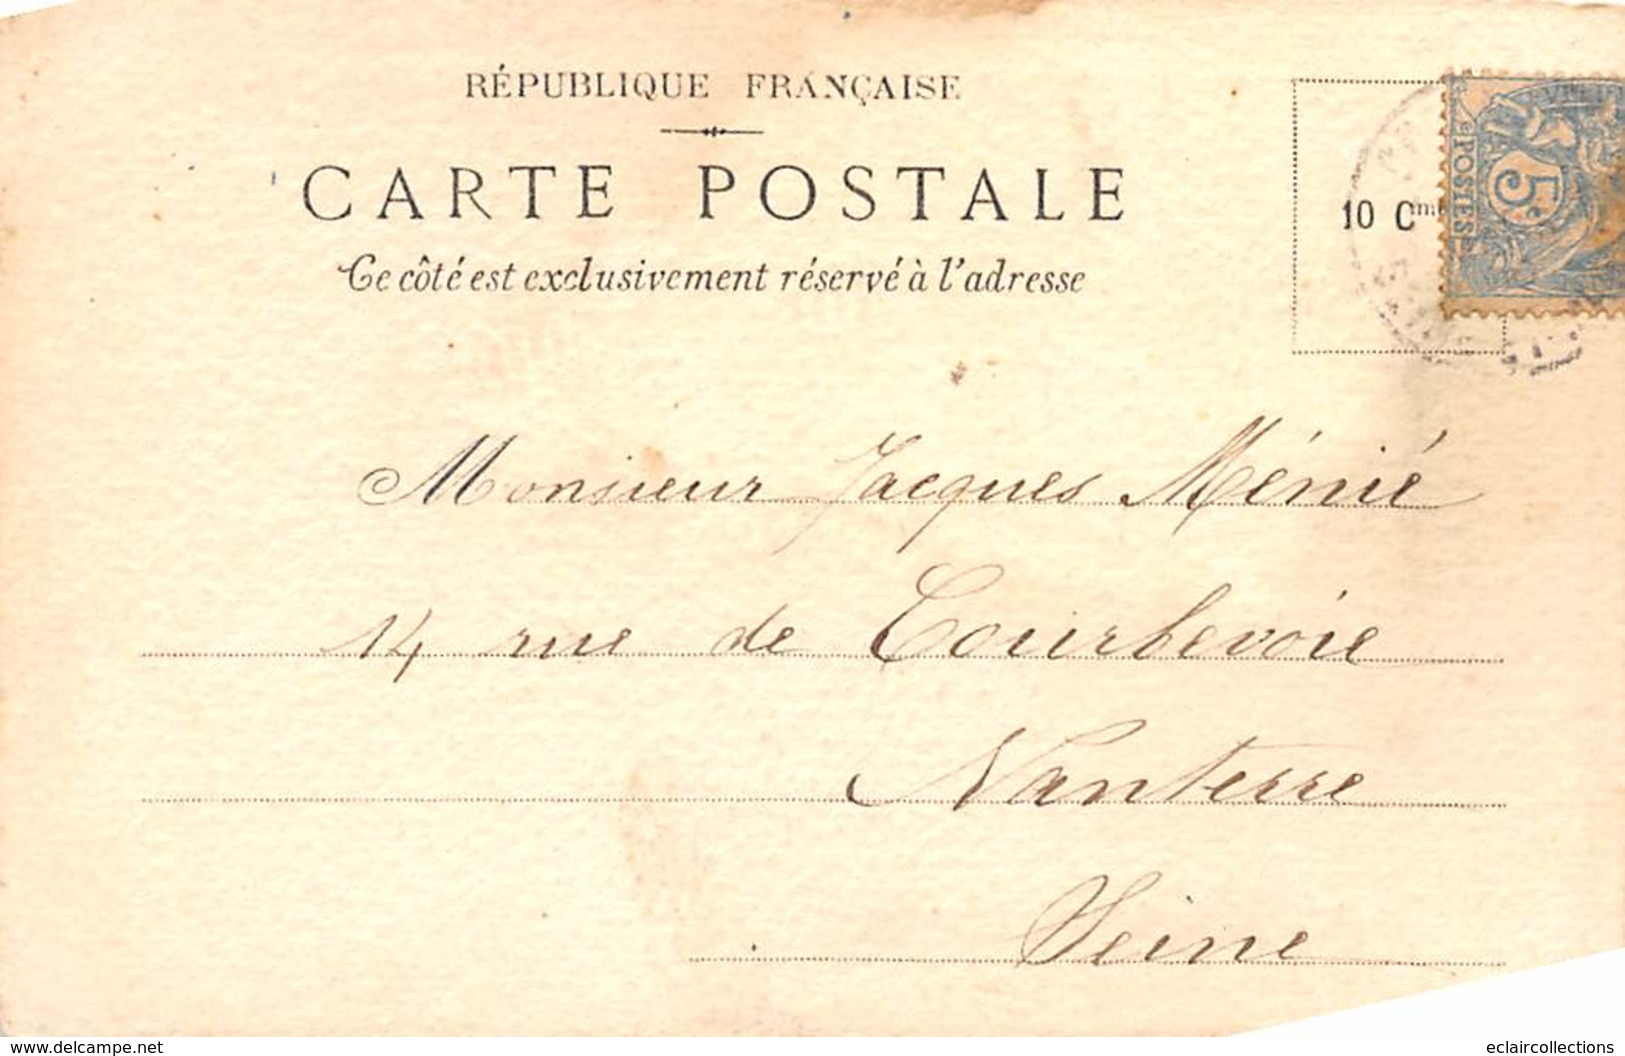 RÉPUBLIQUE FRANÇAISE
CARTE POSTALE
Ce côté est exclusivement réservé à l'adresse
10 Cmes
POSTES
5c
Monsieur Jacques Ménié
14 rue de Courbevoie
Nanterre
Seine
www.delcampe.net
eclaircollections